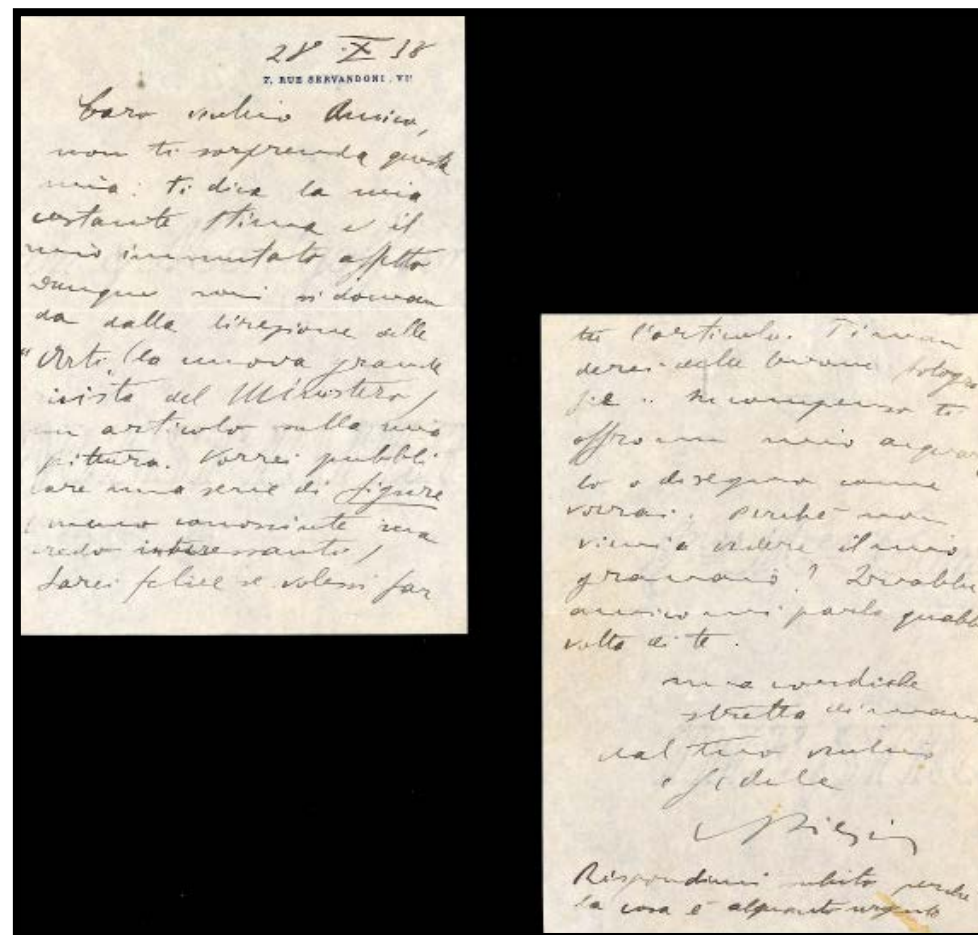 28 · X 38
7, RUE SERVANDONI, VIᵉ
Caro vecchio Amico,
non ti sorprenda questa
mia: ti dica la mia
costante stima e il
mio immutato affetto
Dunque mi si doman
da dalla direzione delle
"Arti" (la nuova grande
rivista del Ministero)
un articolo sulla mia
pittura. Vorrei pubbli
care una serie di figure
(meno conosciute ma
credo interessanti)
Sarei felice se volessi far
tu l'articolo. Ti man
derei delle buone fotogra
fie .. In compenso ti
offro un mio acquarel
lo o disegno come
vorrai. Perché non
vieni a vedere il mio
? Qualche
amico mi parla qualche
volta di te.
una cordiale
stretta di mano
dal tuo vecchio
e fedele
Rispondimi subito perché
la cosa è alquanto urgente